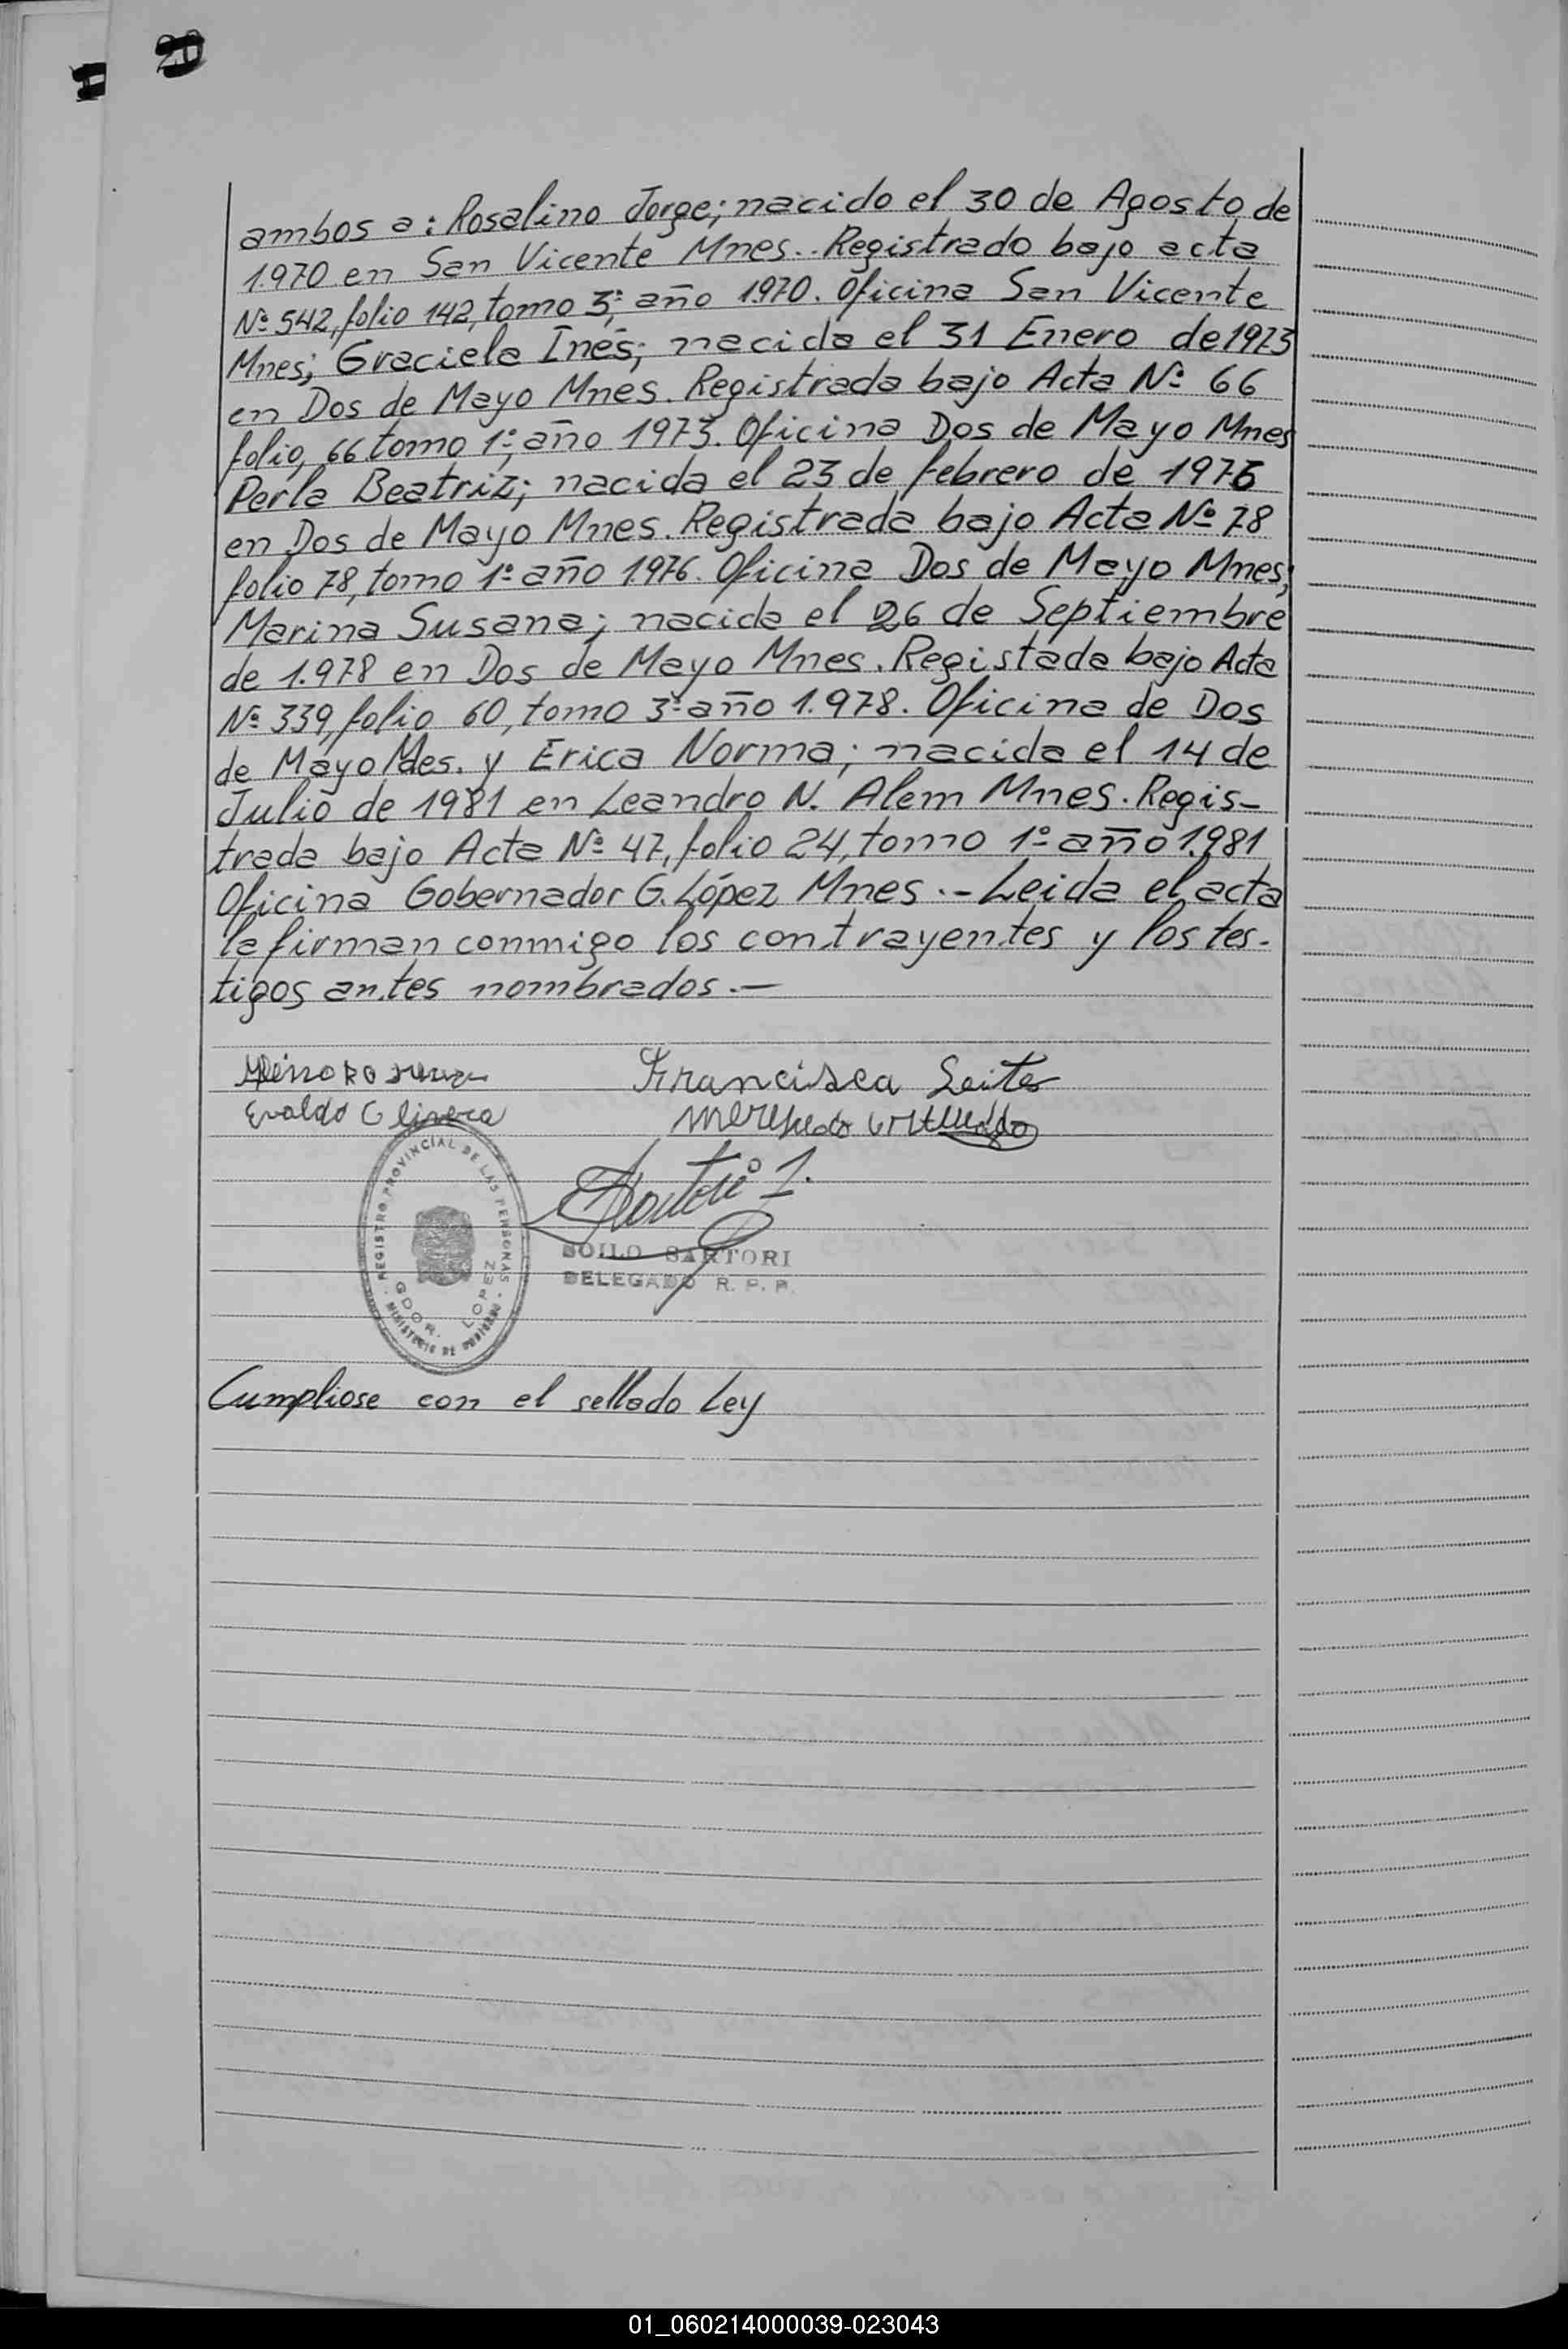 20
ambos a: Rosalino Jorge; nacido el 30 de Agosto de
1.970 en San Vicente Mnes.. Registrado bajo acta
Nº 542, folio 142, tomo 3º, año 1.970. Oficina San Vicente
Mnes; Graciela Inés; nacida el 31 Enero de 1973
en Dos de Mayo Mnes. Registrada bajo Acta Nº 66
folio, 66 tomo 1º, año 1973. Oficina Dos de Mayo Mnes
Perla Beatriz; nacida el 23 de febrero de 1976
en Dos de Mayo Mnes. Registrada bajo Acta Nº 78
folio 78, tomo 1º año 1.976. Oficina Dos de Mayo Mnes;
Marina Susana; nacida el 26 de Septiembre
de 1.978 en Dos de Mayo Mnes. Registada bajo Acta
Nº 339, folio 60, tomo 3º año 1.978. Oficina de Dos
de Mayo Mnes. y Erica Norma; nacida el 14 de
Julio de 1981 en Leandro N. Alem Mnes. Regis-
trada bajo Acta Nº 47, folio 24, tomo 1º año 1.981
Oficina Gobernador G. López Mnes.- Leida el acta
la firman conmigo los contrayentes y los tes-
tigos antes nombrados.-
Francisca Leites
Evaldo Olivera
REGISTRO PROVINCIAL DE LAS PERSONAS
GDOR. LOPEZ
MINISTERIO DE GOBIERNO
SOILO SARTORI
DELEGADO R. P. P.
Cumpliose con el sellado Ley
01_060214000039-023043